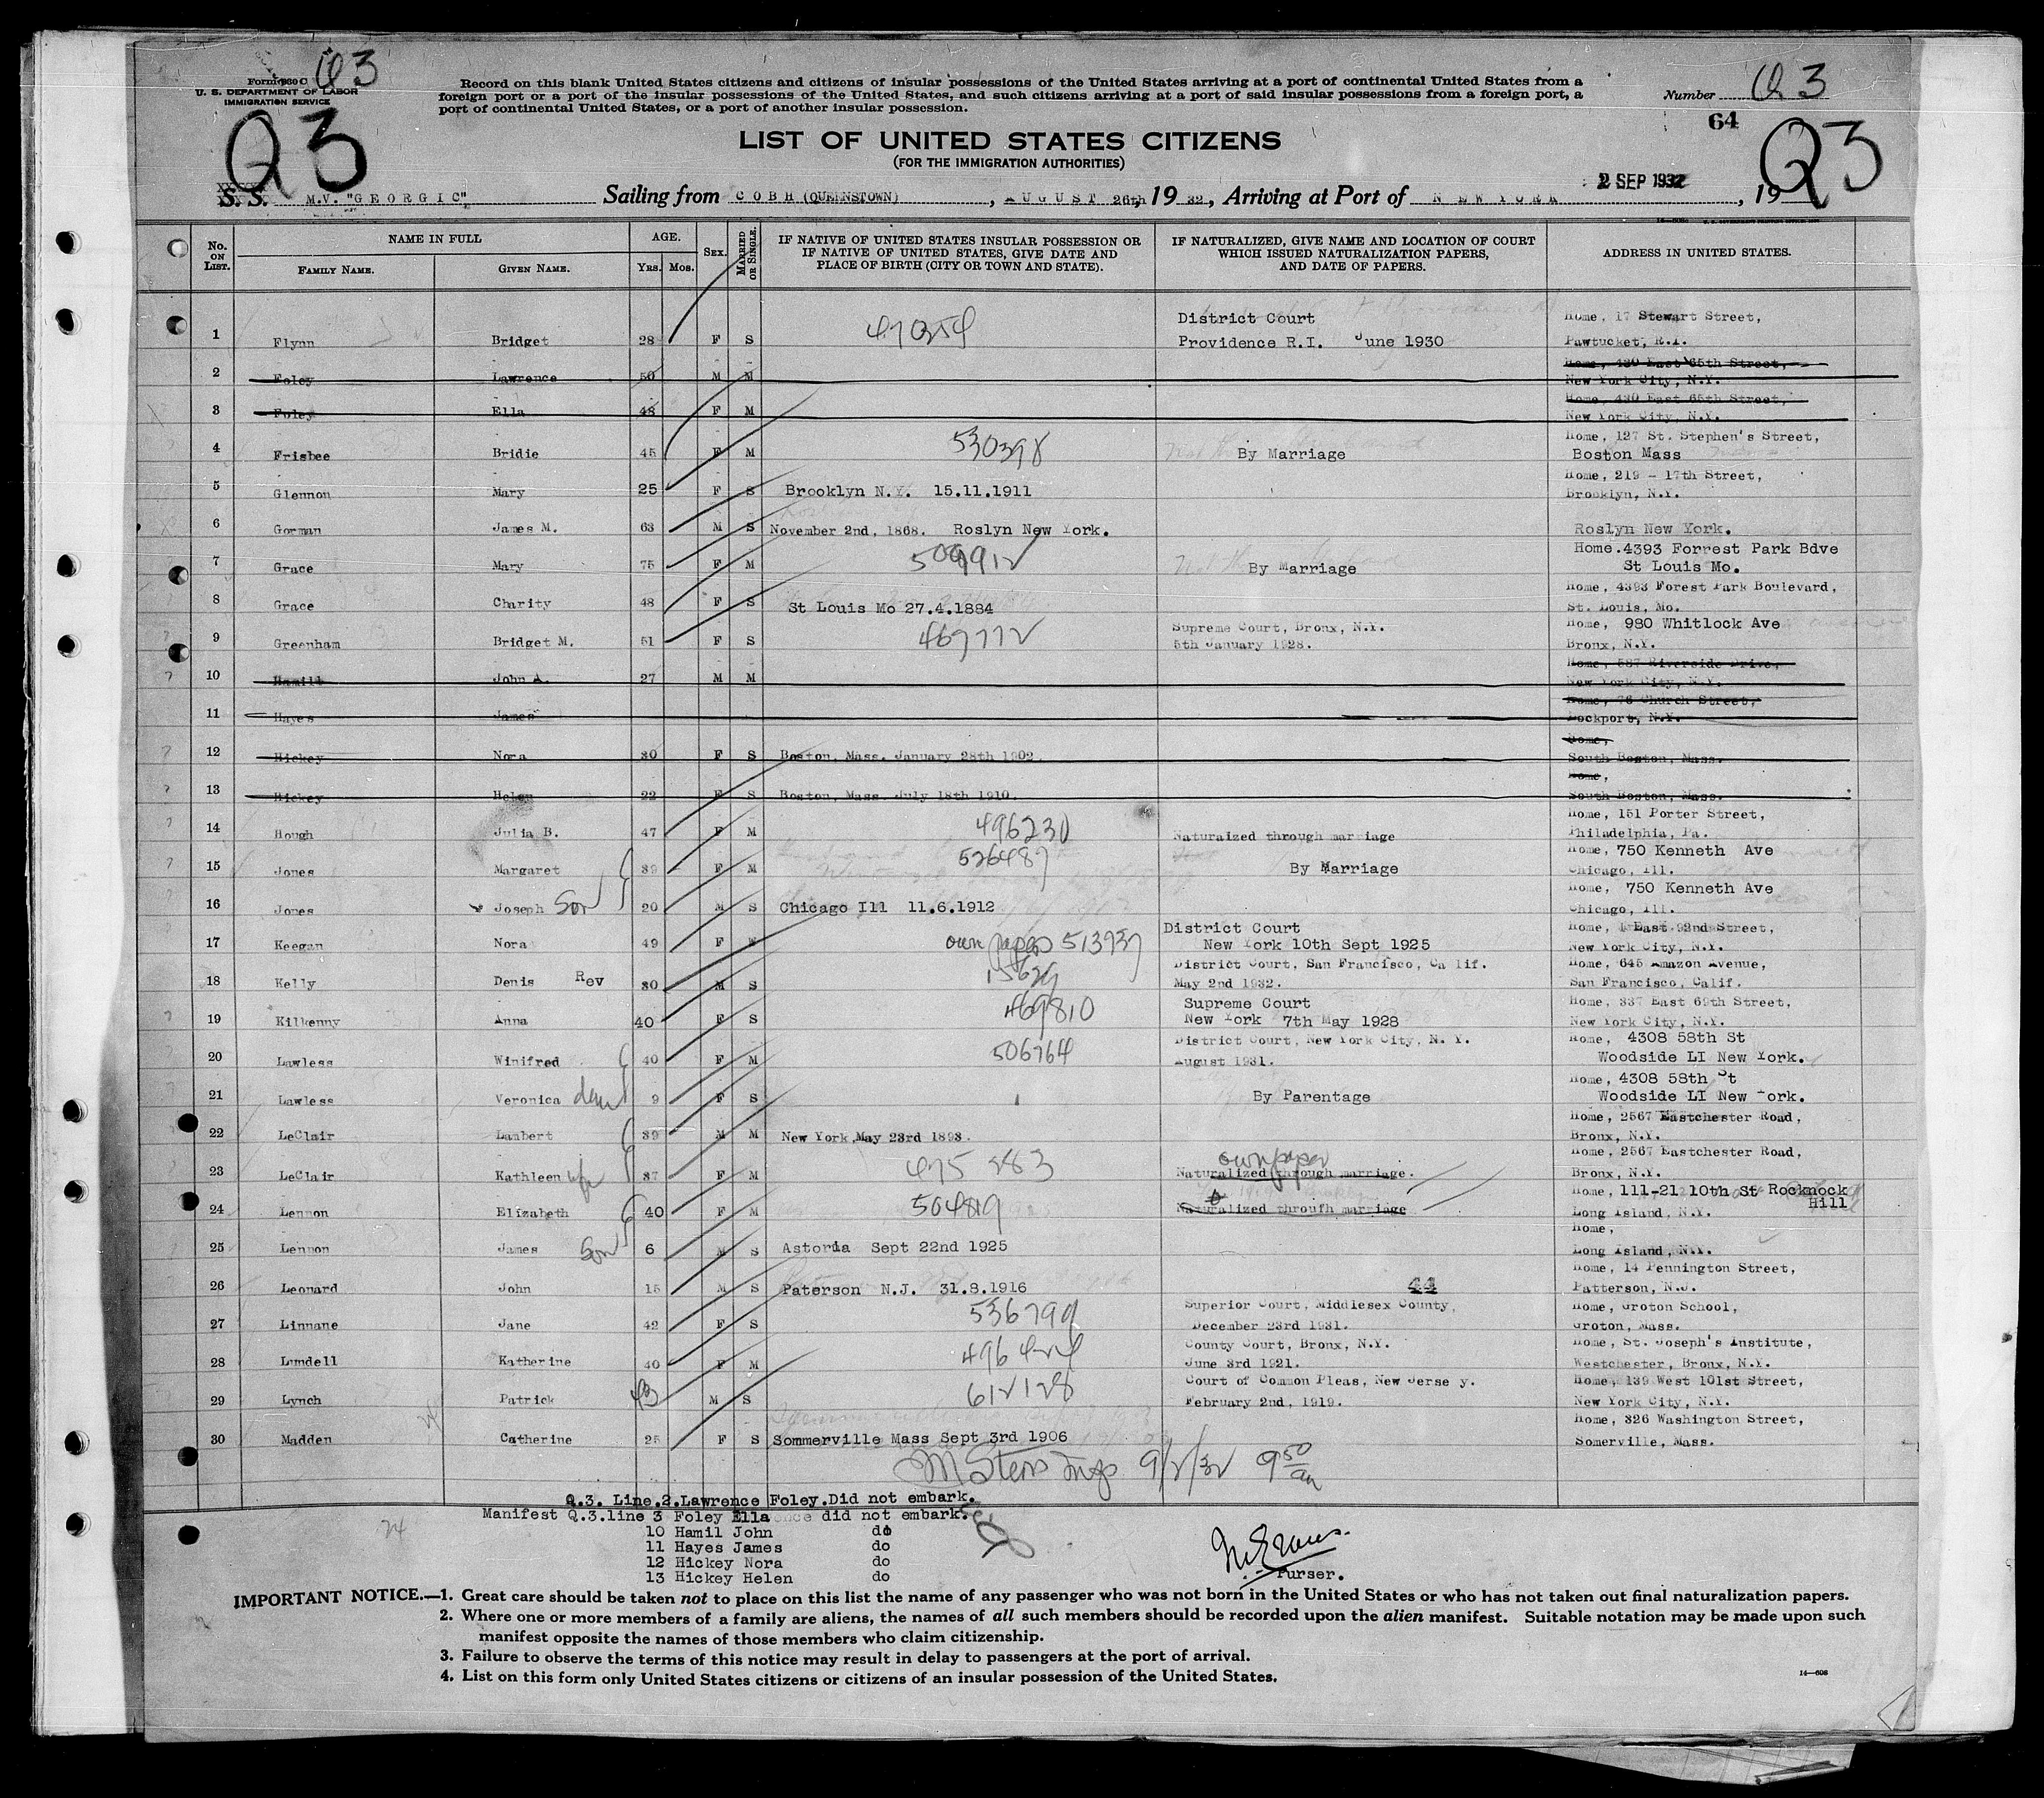 Form 630 C Q3
U. S. DEPARTMENT OF LABOR
IMMIGRATION SERVICE
Q3
Record on this blank United States citizens and citizens of insular possessions of the United States arriving at a port of continental United States from a
foreign port or a port of the insular possessions of the United States, and such citizens arriving at a port of said insular possessions from a foreign port, a
port of continental United States, or a port of another insular possession.
Number Q3
64
Q3
LIST OF UNITED STATES CITIZENS
(FOR THE IMMIGRATION AUTHORITIES)
S. S. M.V. "GEORGIC", Sailing from COBH (QUEENSTOWN), AUGUST 26th, 1932, Arriving at Port of NEW YORK 2 SEP 1932, 19
No. ON LIST. NAME IN FULL FAMILY NAME. GIVEN NAME. AGE. YRS. MOS. SEX. MARRIED OR SINGLE. IF NATIVE OF UNITED STATES INSULAR POSSESSION OR IF NATIVE OF UNITED STATES, GIVE DATE AND PLACE OF BIRTH (CITY OR TOWN AND STATE). IF NATURALIZED, GIVE NAME AND LOCATION OF COURT WHICH ISSUED NATURALIZATION PAPERS, AND DATE OF PAPERS. ADDRESS IN UNITED STATES.
1 Flynn Bridget 28 F S 47354 District Court Providence R.I. June 1930 Home, 17 Stewart Street, Pawtucket, R.I.
2 Foley Lawrence 50 M M Home, 430 East 65th Street, New York City, N.Y.
3 Foley Ella 48 F M Home, 430 East 65th Street, New York City, N.Y.
4 Frisbee Bridie 45 F M 530398 By Marriage Home, 127 St. Stephen's Street, Boston Mass
5 Glennon Mary 25 F S Brooklyn N.Y. 15.11.1911 Home, 219 - 17th Street, Brooklyn, N.Y.
6 Gorman James M. 63 M S November 2nd, 1868. Roslyn New York. Roslyn New York.
7 Grace Mary 75 F M 509912 By Marriage Home.4393 Forrest Park Bdve St Louis Mo.
8 Grace Charity 48 F S St Louis Mo 27.4.1884 Home, 4393 Forest Park Boulevard, St. Louis, Mo.
9 Greenham Bridget M. 51 F S 467772 Supreme Court, Bronx, N.Y. 5th January 1928. Home, 980 Whitlock Ave Bronx, N.Y.
10 Hamill John A. 27 M M Home, 587 Riverside Drive, New York City, N.Y.
11 Hayes James Home, 76 Church Street, Lockport, N.Y.
12 Hickey Nora 30 F S Boston, Mass. January 28th 1902. Home, South Boston, Mass.
13 Hickey Helen 22 F S Boston, Mass. July 18th 1910. Home, South Boston, Mass.
14 Hough Julia B. 47 F M 496230 Naturaized through marriage Home, 151 Porter Street, Philadelphia, Pa.
15 Jones Margaret 39 F M 526487 By Marriage Home, 750 Kenneth Ave Chicago, Ill.
16 Jones Joseph Son 20 M S Chicago Ill 11.6.1912 Home, 750 Kenneth Ave Chicago, Ill.
17 Keegan Nora 49 F own papers 513937 District Court New York 10th Sept 1925 Home, 1 East 92nd Street, New York City, N.Y.
18 Kelly Denis Rev 30 M S 15629 District Court, San Francisco, Ca lif. May 2nd 1932. Home, 645 Amazon Avenue, San Francisco, Calif.
19 Kilkenny Anna 40 F S 469810 Supreme Court New York 7th May 1928 Home, 337 East 69th Street, New York City, N.Y.
20 Lawless Winifred 40 F M 506764 District Court, New York City, N. Y. August 1931. Home, 4308 58th St Woodside LI New York.
21 Lawless Veronica dau 9 F S By Parentage Home, 4308 58th St Woodside LI New York.
22 LeClair Lambert 39 M M New York, May 23rd 1893. Home, 2567 Eastchester Road, Bronx, N.Y.
23 LeClair Kathleen wfe 37 F M 475 883 own paper Naturalized through marriage. Home, 2567 Eastchester Road, Bronx, N.Y.
24 Lennon Elizabeth 40 F M 504819 Naturalized throufh marriage Home, 111-21 10th St Rocknock Hill Long Island, N.Y.
25 Lennon James Son 6 M S Astoria Sept 22nd 1925 Home, Long Island, N.Y.
26 Leonard John 15 M S Paterson N.J. 31.8.1916 44 Home, 14 Pennington Street, Patterson, N.J.
27 Linnane Jane 42 F S 536799 Superior Court, Middlesex County, December 23rd 1931. Home, Groton School, Groton, Mass.
28 Lundell Katherine 40 F M 496424 County Court, Bronx, N.Y. June 3rd 1921. Home, St. Joseph's Institute, Westchester, Bronx, N.Y.
29 Lynch Patrick 43 M S 612128 Court of Common Pleas, New Jerse y. February 2nd, 1919. Home, 139 West 101st Street, New York City, N.Y.
30 Madden Catherine 25 F S Sommerville Mass Sept 3rd 1906 Home, 326 Washington Street, Somerville, Mass.
9/2/32 9 50 am
Q.3. Line.2.Lawrence Foley.Did not embark.
Manifest Q.3.line 3 Foley Ella did not embark.
10 Hamil John do
11 Hayes James do
12 Hickey Nora do
13 Hickey Helen do
Purser.
IMPORTANT NOTICE.—1. Great care should be taken not to place on this list the name of any passenger who was not born in the United States or who has not taken out final naturalization papers.
2. Where one or more members of a family are aliens, the names of all such members should be recorded upon the alien manifest. Suitable notation may be made upon such
manifest opposite the names of those members who claim citizenship.
3. Failure to observe the terms of this notice may result in delay to passengers at the port of arrival.
4. List on this form only United States citizens or citizens of an insular possession of the United States.
14—608